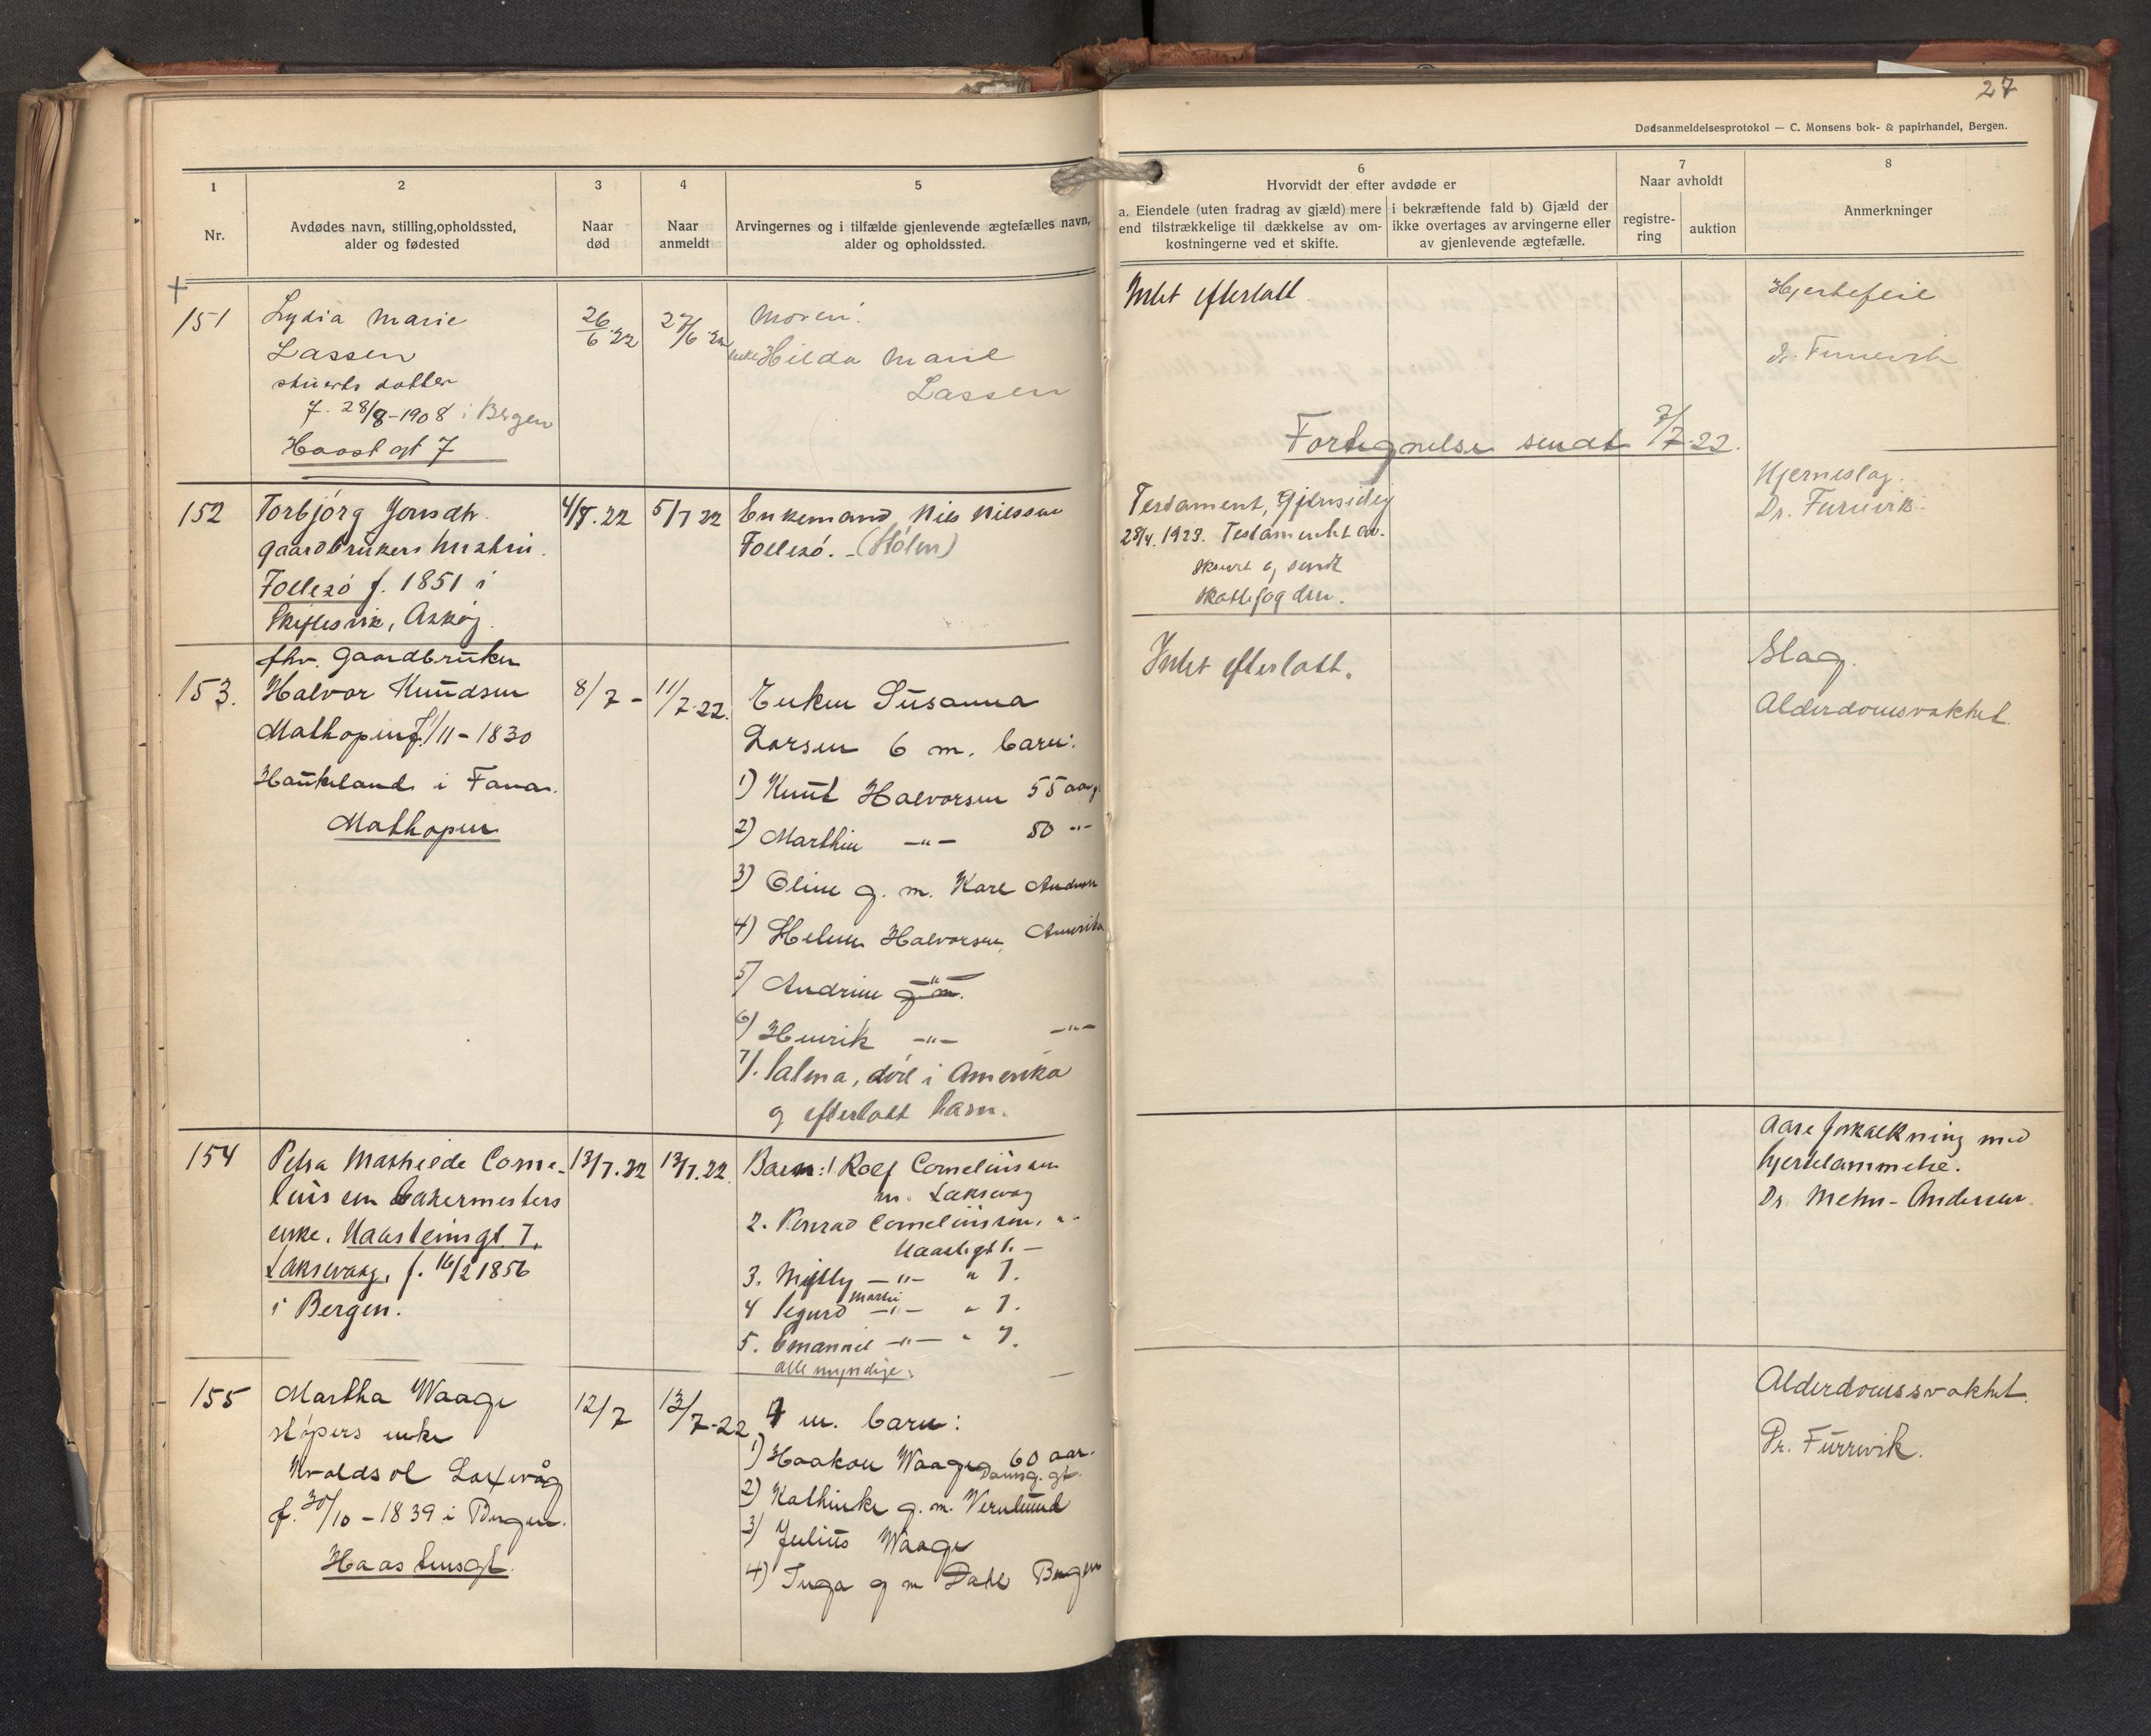 27
Dødsanmeldelsesprotokol — C. Monsens bok- & papirhandel, Bergen.
1
Nr.
2
Avdødes navn, stilling, opholdssted,
alder og fødested
3
Naar
død
4
Naar
anmeldt
5
Arvingernes og i tilfælde gjenlevende ægtefælles navn,
alder og opholdssted.
6
Hvorvidt der efter avdøde er
a. Eiendele (uten fradrag av gjæld) mere
end tilstrækkelige til dækkelse av om-
kostningerne ved et skifte.
i bekræftende fald b) Gjæld der
ikke overtages av arvingerne eller
av gjenlevende ægtefælle.
7
Naar avholdt
registre-
ring
auktion
8
Anmerkninger
+
151
Lydia Marie
Lassen
stuerts datter
f. 28/8-1908 i Bergen
Haast gt 7
26/6-22
27/6-22
Moren:
enke Hilda Marie
Lassen
Intet efterlatt.
Hjertefeil
Dr. Furrevik
Fortegnelse sendt 7/7-22.
152
Torbjörg Jonsdtr.
gaardbrukers hustru.
Follesö f. 1851 i
Skiftesvik, Askøy.
4/7.22
5/7 22
Enkemand Nils Nilssen
Follesö. - (Hólen)
Testament, Gjensidig
28/4. 1923. Testamentet av-
skrevet og sendt
skattefogden.
Hjerneslag.
Dr. Furuvik.
153.
fhv. Gaardbruker
Halvor Knudsen
Mathopen f. 1/11-1830
Haukeland i Fana.
Mathopen
8/7 -
11/7-22.
Enken Susanna
Larsen 6 m. barn:
1) Knut Halvorsen 55 aar,
2) Marthin -"- 50 -"-
3) Oline g. m. Karl Andersen
4) Helene Halvorsen, Amerika
5) Andrine g. m. -"-
6) Henrik -"- -"-
7). Salma, död i Amerika
og efterlatt barn.
Intet efterlatt.
Slag.
Alderdomsvakhet.
154
Petra Mathilde Corne-
liussen bakermesters
enke. Haasteinsgt 7,
Laksevaag, f. 16/2 1856
i Bergen.
13/7.22
13/7.22.
Barn: 1 Rolf Corneliussen
m. Laksevag
2. Konrad Corneliussen, "-
Haastgt 1. -
3. Milly -"- " 7.
4 Sigurd Martin -"- " 7.
5. Emanuel -"- " 7.
alle myndige.
Aareforkalkning med
hjertelammelse.
Dr. Mehn-Andersen.
155
Martha Waage
støpers enke
Kvoldsøl Laxevåg
f. 30/10-1839 i Bergen.
Haasteinsgt.
12/7
13/7-22
4 m. barn:
1) Haakon Waage 60 aar.
Damsg. gt.
2) Kathinke g. m. Vernlund
3) Julius Waage
4) Inga g m Dahl Bergen
Alderdomssvakhet.
Dr. Furrevik.